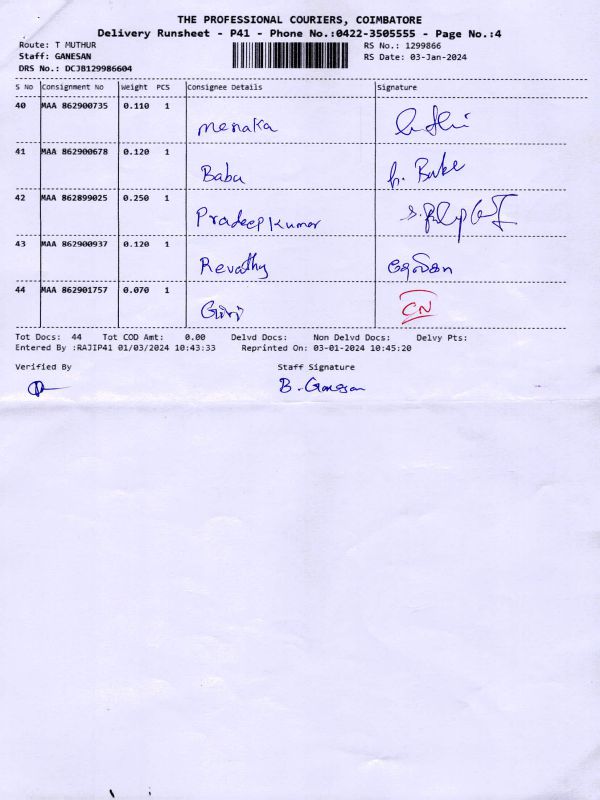 THE PROFESSIONAL COURIERS, COIMBATORE
Delivery Runsheet - P41 - Phone No.:0422-3505555 - Page No.:4
Route: T MUTHUR RS No.: 1299866
Staff: GANESAN RS Date: 03-Jan-2024
DRS No.: DCJB129986604
S No Consignment No Weight PCS Consignee Details Signature
40 MAA 862900735 0.110 1
Menaka
41 MAA 862900678 0.120 1
Babu
42 MAA 862899025 0.250 1
Pradeep Kumar
43 MAA 862900937 0.120 1
Revathy
44 MAA 862901757 0.070 1
Giri CN
Tot Docs: 44 Tot COD Amt: 0.00 Delvd Docs: Non Delvd Docs: Delvy Pts:
Entered By :RAJIP41 01/03/2024 10:43:33 Reprinted On: 03-01-2024 10:45:20
Verified By Staff Signature
B. Ganesan